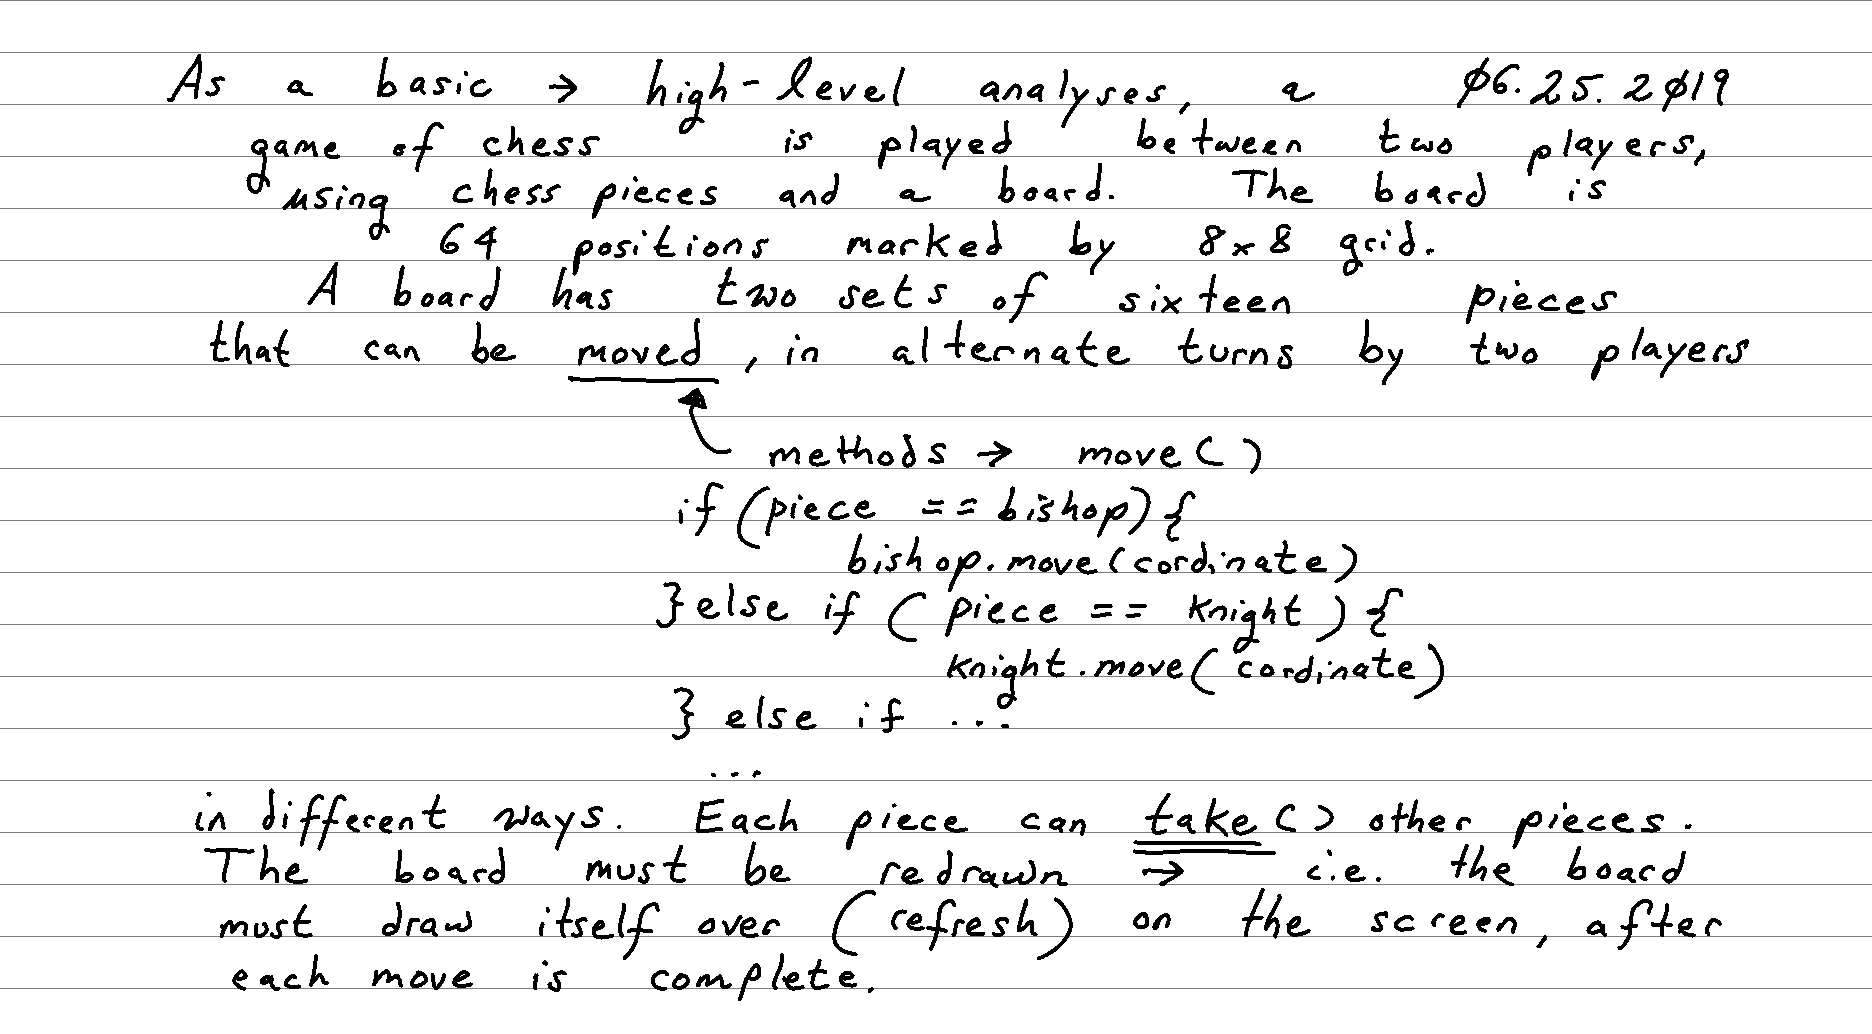 As a basic → high-level analyses, a ø6.25.2ø19
game of chess is played between two players,
using chess pieces and a board. The board is
64 positions marked by 8x8 grid.
A board has two sets of sixteen pieces
that can be moved, in alternate turns by two players
methods → move()
if (piece == bishop) {
bishop.move(cordinate)
} else if (piece == knight) {
knight.move(cordinate)
} else if ...
...
in different ways. Each piece can take() other pieces.
The board must be redrawn → i.e. the board
must draw itself over (refresh) on the screen, after
each move is complete.